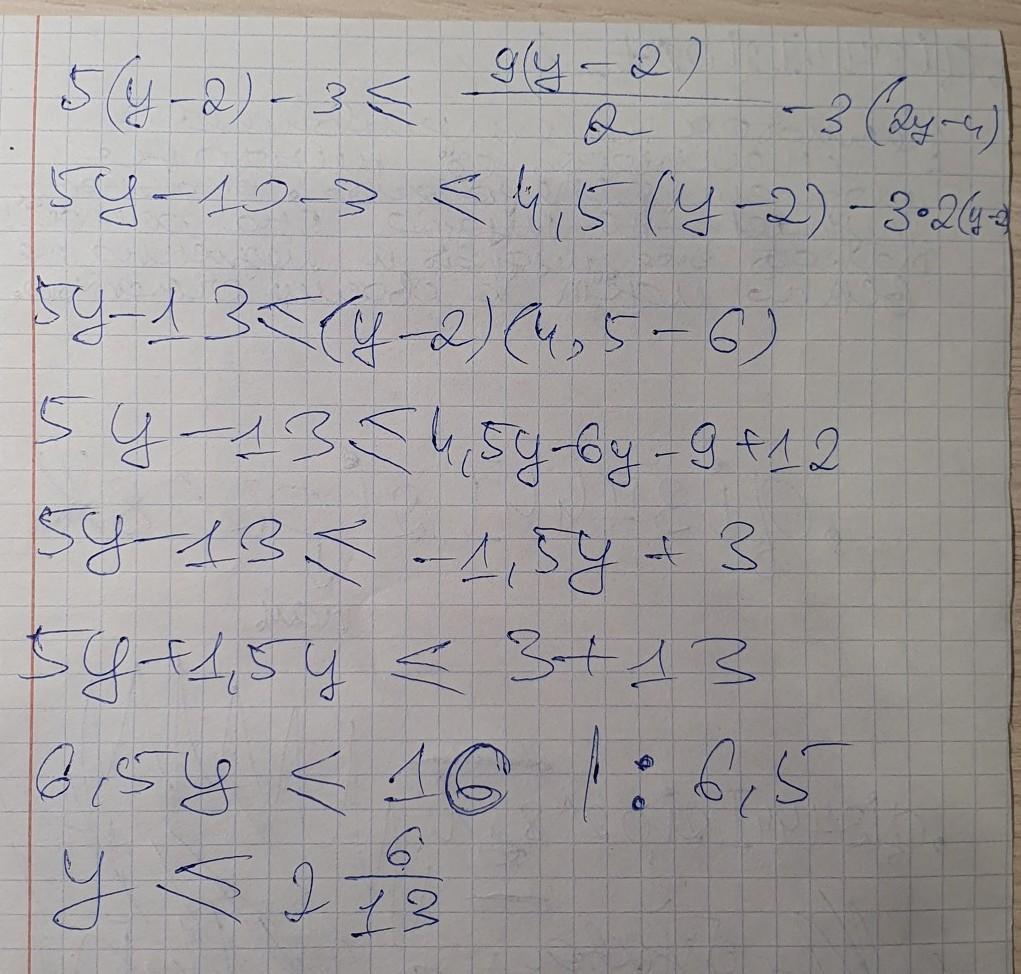 5(y-2)-3 ≤ 9(y-2)/2 -3(2y-4)
5y-10-3 ≤ 4,5(y-2)-3•2(y-2)
5y-13≤(y-2)(4,5-6)
5y-13≤4,5y-6y-9+12
5y-13≤-1,5y+3
5y+1,5y ≤ 3+13
6,5y ≤ 16 |:6,5
y ≤ 2 6/13